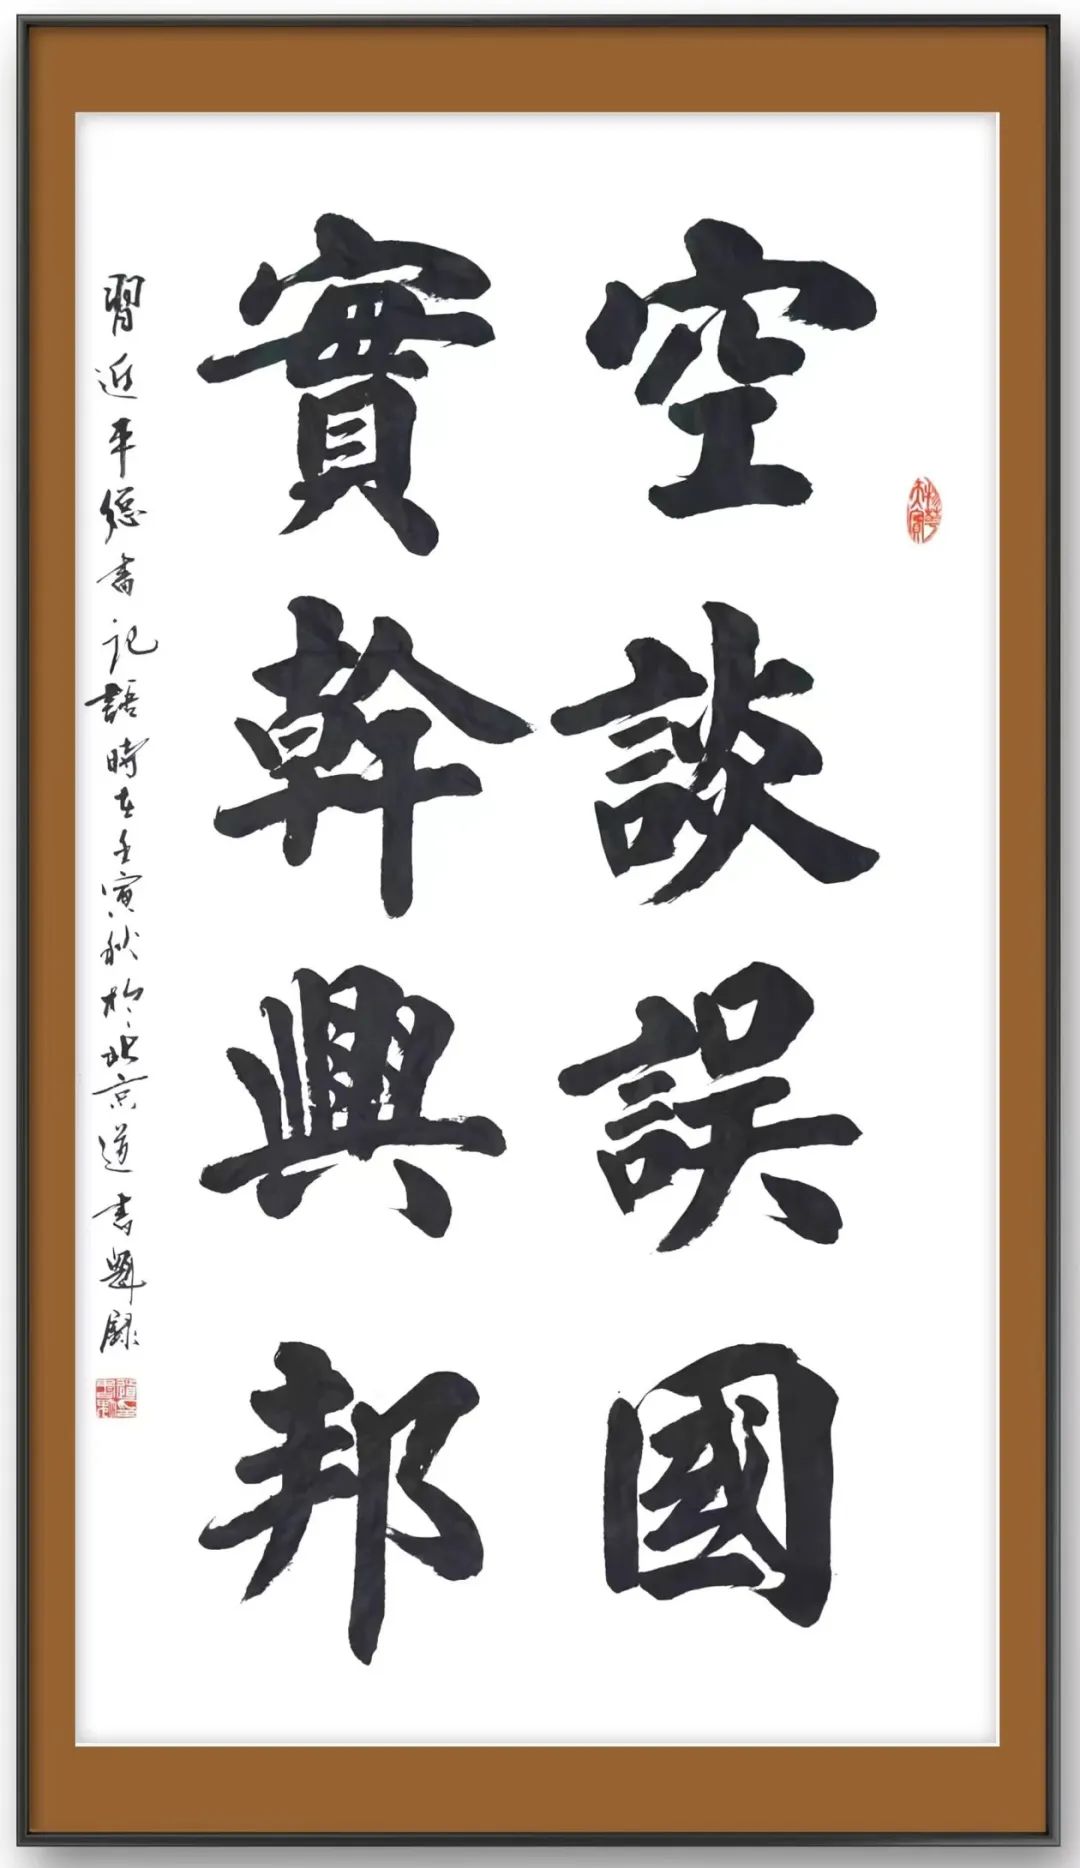 空談誤國
實幹興邦
習近平總書記語時在壬寅秋於北京道書題錄
物華天寶